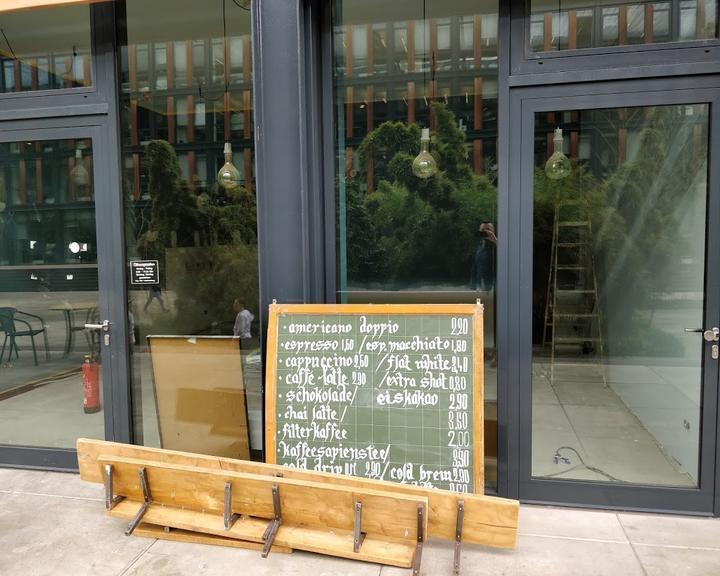 Öffnungszeiten
· americano doppio 2,20
· espresso 1,60 / esp. macchiato 1,80
· cappuccino 2,60 / flat white 2,40
· caffe latte 2,90 / extra shot 0,80
· schokolade / eiskakao 2,90
· chai latte / 3,60
· filterkaffee 2,00
kaffeesapienstee /
cold drip 2,90 / cold brew 2,90